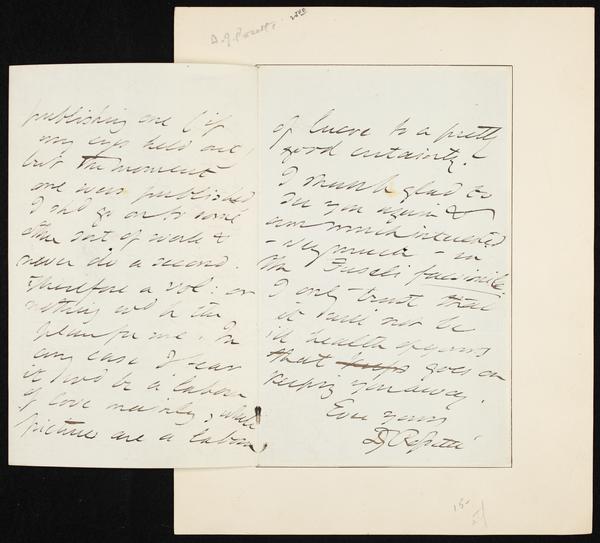 D. G. Rossetti
publishing one (if
my eyes held out)
but the moment
one were published
I shd go on to some
other sort of work &
never do a second.
Therefore a vol: or
nothing wd be the
plan for me. In
any case I fear
it wd be a labour
of love mainly, while
pictures are a labour
of lucre to a pretty
good certainty!
I shall be glad to
see you again &
am much interested
– very much – in
the Fuseli facsimile.
I only trust that
it will not be
ill health of yours
that goes on
keeping you away.
Ever yours
D G Rossetti
15-